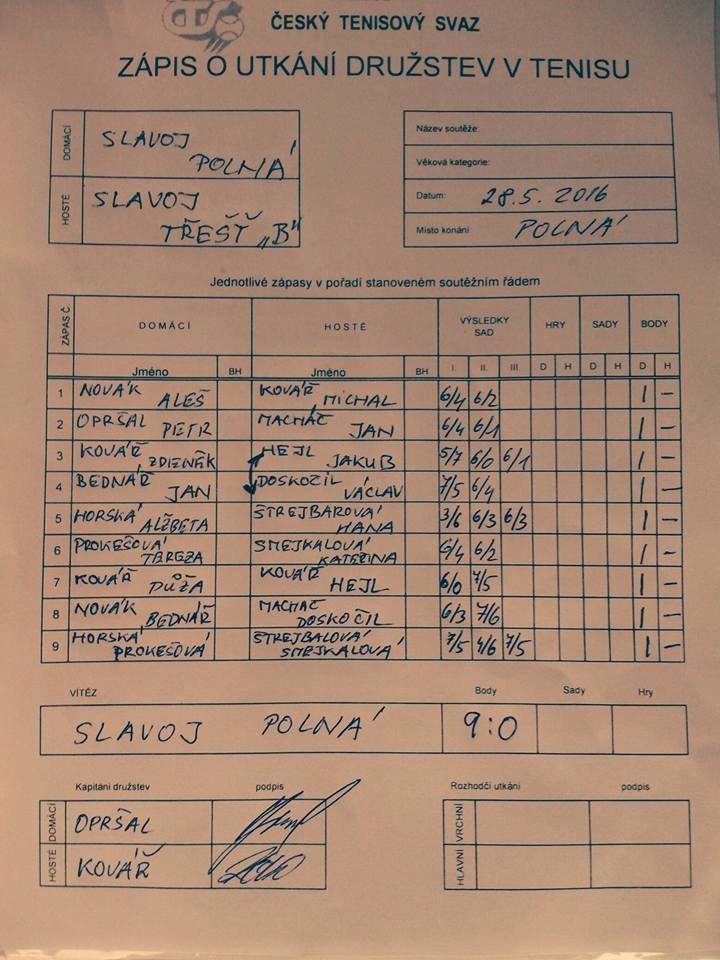 ČTS
ČESKÝ TENISOVÝ SVAZ
ZÁPIS O UTKÁNÍ DRUŽSTEV V TENISU
DOMÁCÍ
SLAVOJ
POLNÁ
HOSTÉ
SLAVOJ
TŘEŠŤ „B"
Název soutěže:
Věková kategorie:
Datum: 28.5. 2016
Místo konání: POLNÁ
Jednotlivé zápasy v pořadí stanoveném soutěžním řádem
ZÁPAS Č. DOMÁCÍ HOSTÉ VÝSLEDKY SAD HRY SADY BODY
Jméno BH Jméno BH I. II. III. D H D H D H
1 NOVÁK ALEŠ KOVÁŘ MICHAL 6/4 6/2 1 –
2 OPRŠAL PETR MACHÁČ JAN 6/4 6/1 1 –
3 KOVÁŘ ZDENĚK HEJL JAKUB 5/7 6/0 6/1 1 –
4 BEDNÁŘ JAN DOSKOČIL VÁCLAV 7/5 6/4 1 –
5 HORSKÁ ALŽBĚTA ŠTREJBAROVÁ HANA 3/6 6/3 6/3 1 –
6 PROKEŠOVÁ TEREZA SMEJKALOVÁ KATEŘINA 6/4 6/2 1 –
7 KOVÁŘ PŮŽA KOVÁŘ HEJL 6/0 7/5 1 –
8 NOVÁK BEDNÁŘ MACHAČ DOSKOČIL 6/3 7/6 1 –
9 HORSKÁ PROKEŠOVÁ ŠTREJBALOVÁ SMEJKALOVÁ 7/5 4/6 7/5 1 –
VÍTĚZ Body Sady Hry
SLAVOJ POLNÁ 9:0
Kapitáni družstev podpis Rozhodčí utkání podpis
DOMÁCÍ OPRŠAL VRCHNÍ
HOSTÉ KOVÁŘ HLAVNÍ